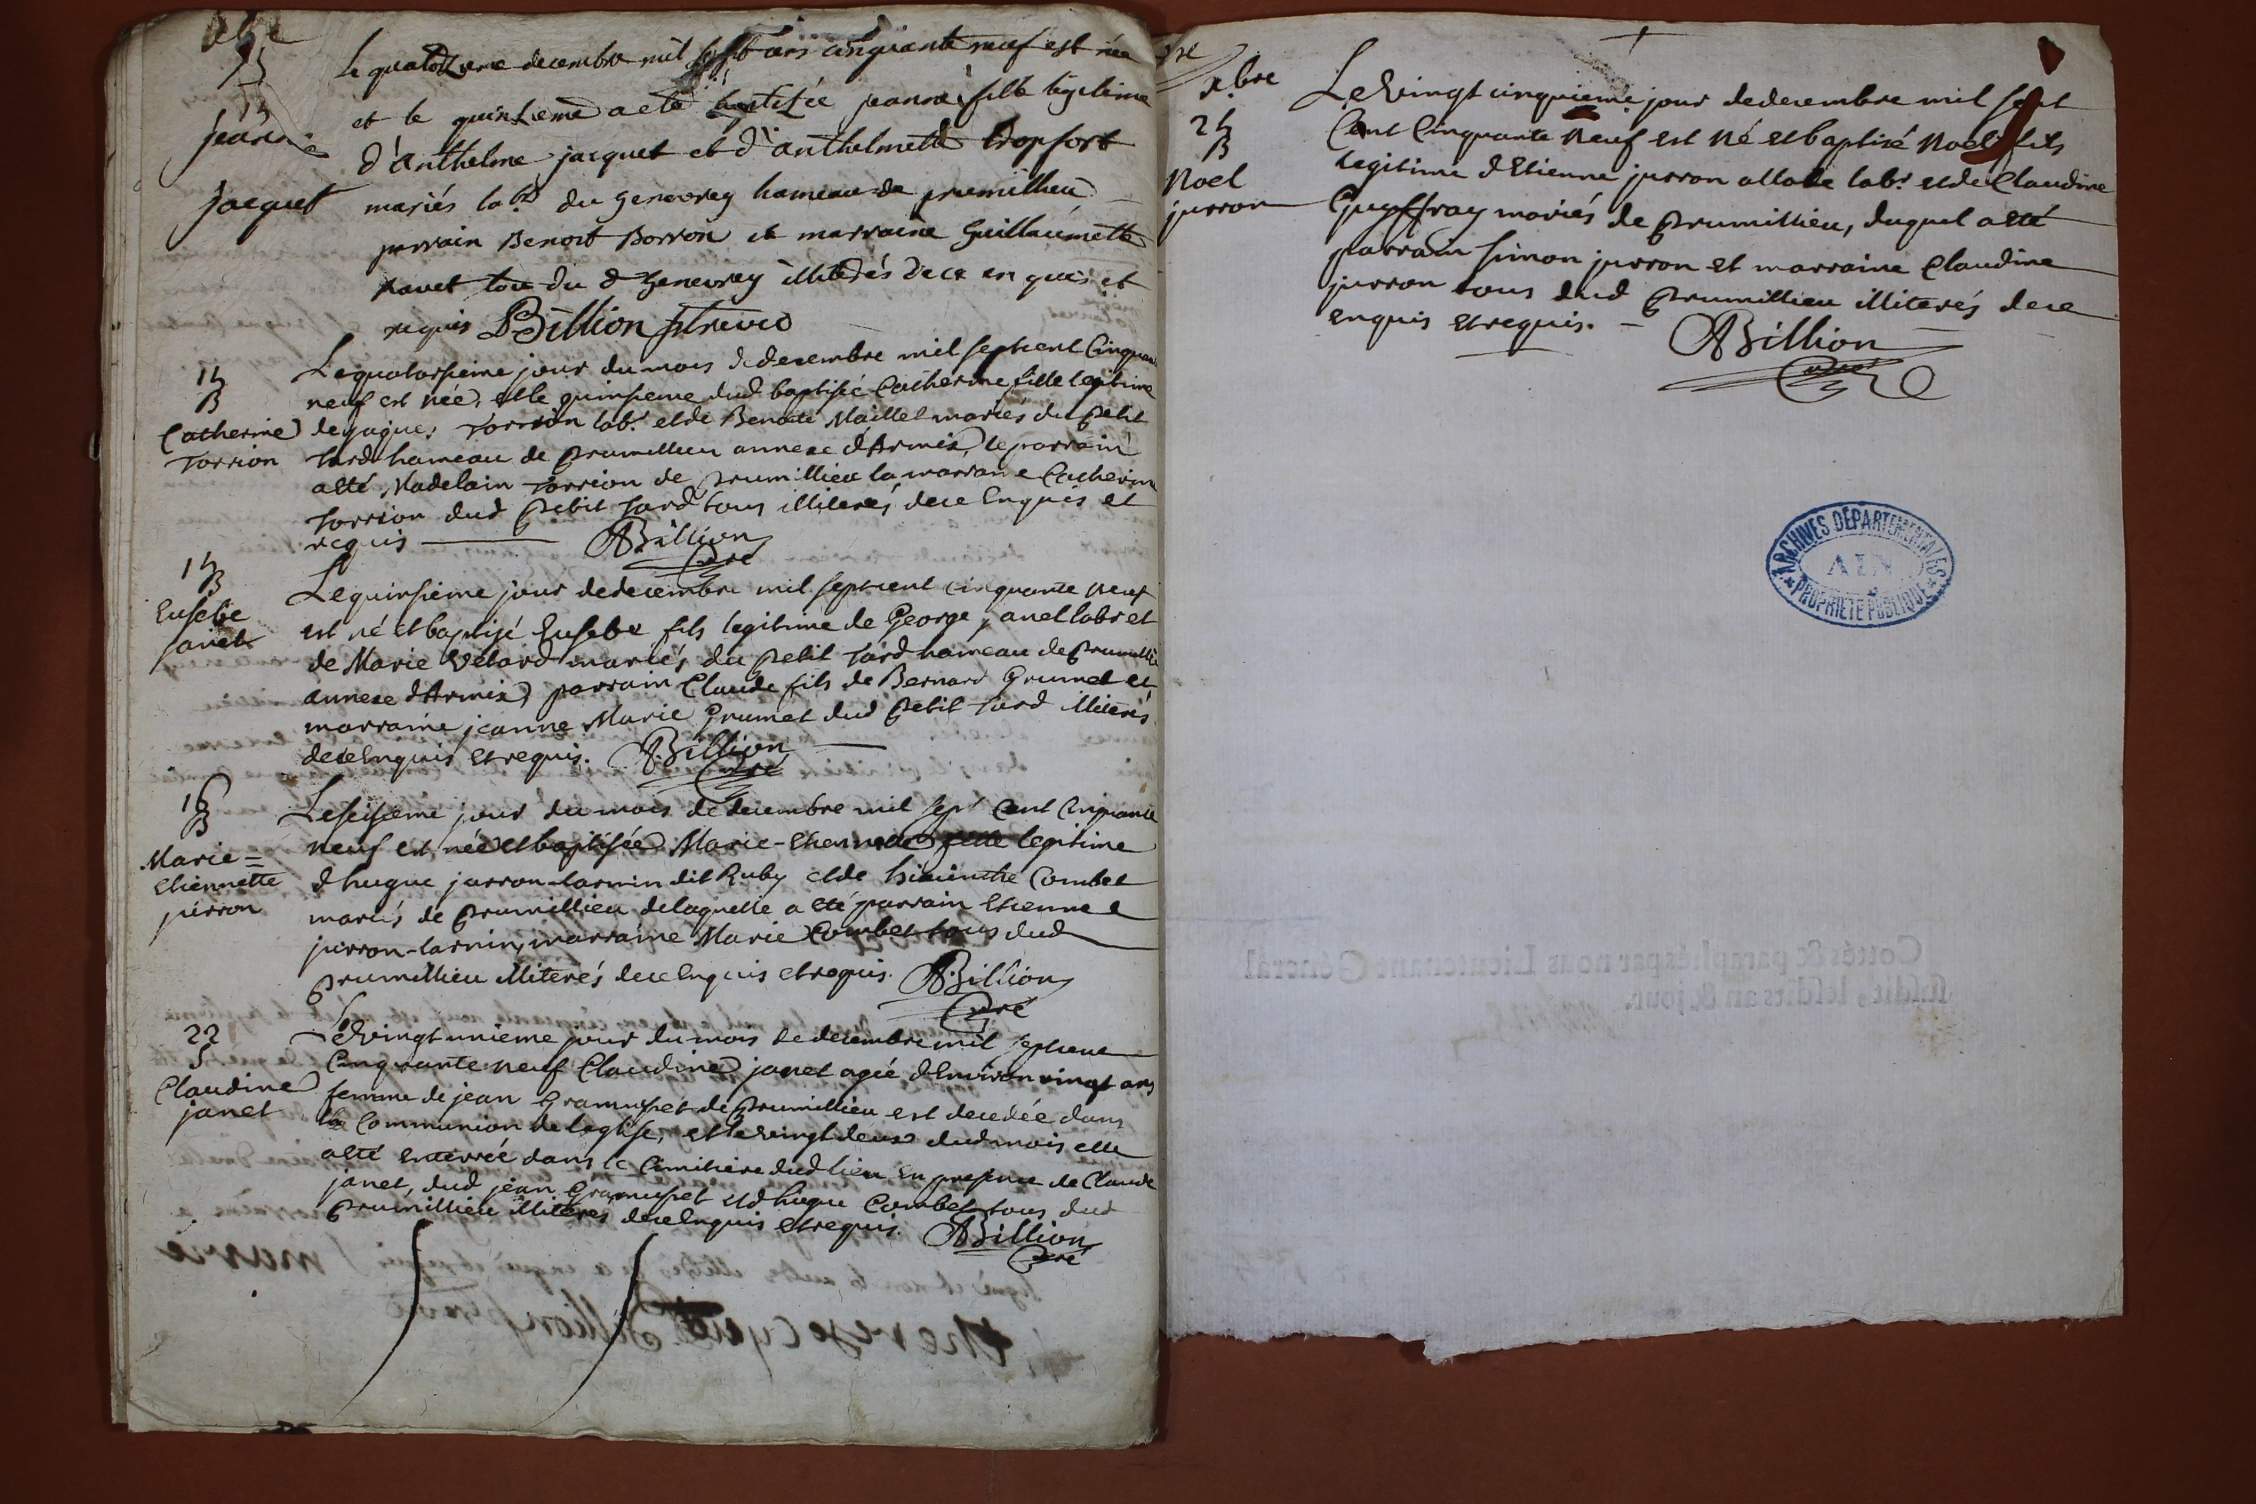 xbre
15
B
jeanne
jacquet
le quatorzieme decembre mil sept cens cinquante neuf est née
et le quinzieme a eté baptisée jeanne fille legitime
d'anthelme jacquet et d'anthelmette tropfort
mariés labrs du genevrey hameau de prumillieu
parrain Benoit Borron et marraine Guillaumette
tous du d genevrey illiterés de ce enquis et
requis Billion
15
B
Catherine
Torrion
Le quatorsieme jour du mois de decembre mil sept cent Cinquante
neuf est née, et le quinsieme dud baptisé Catherine fille legitime
de jaques Torrion labr et de Benoite Maillet mariés du petit
Tard hameau de prumillieu annexe d'Armix, le parrain
a eté Madelain Torrion de prumillieu la marraine Catherine
Torrion dud petit Tard tous illiterés de ce Enquis et
requis ABillion
Curé
15
B
Eusebe
janet
Le quinsieme jour de decembre mil sept cent cinquante neuf
est né et baptisé Eusebe fils legitime de George janet labr et
de Marie Velard mariés du petit Tard hameau de prumillieu
annexe d'Armix, parrain Claude fils de Bernard Grumet et
marraine jeanne Marie Grumet dud petit Tard illiterés
de ce Enquis et requis. ABillion
Curé
16
B
Marie =
Etiennette
jurron
Le seisieme jour du mois de decembre mil sept Cent Cinquante
neuf est née et baptisée Marie-Etiennette fille legitime
d'hugue jurron-larnin dit Ruby et de hiacinthe Combet
mariés de prumillieu de laquelle a eté parrain Etienne
jurron-larnin, marraine Marie Combet tous dud
prumillieu illiterés de ce Enquis et requis. ABillion
Curé
22
S
Claudine
janet
Le vingt unieme jour du mois de decembre mil sept cent
Cinquante neuf Claudine janet agée d'Environ vingt ans
femme de jean Gramuset de prumillieu est decedée dans
la Communion de l'eglise, et le vingt deux dud mois elle
a eté enterrée dans le Cimitiere dud lieu En presence de Claude
janet, dud jean Gramuset et d'hugue Combet tous dud
prumillieu illiterés de ce Enquis et requis. ABillion
Curé
xbre
25
B
Noel
jurron
Le vingt cinquieme jour de decembre mil sept
Cent Cinquante Neuf est Né et baptisé Noel fils
legitime d'Etienne jurron labr et de Claudine
Guyffray mariés de prumillieu, duquel a eté
parrain Simon jurron et marraine Claudine
jurron tous dud prumillieu illiterés de ce
enquis et requis. ABillion
Curé
ARCHIVES DÉPARTEMENTALES
AIN
PROPRIÉTÉ PUBLIQUE
Cottés & paraphés par nous Lieutenant Général
susdit, lesdits an & jour.